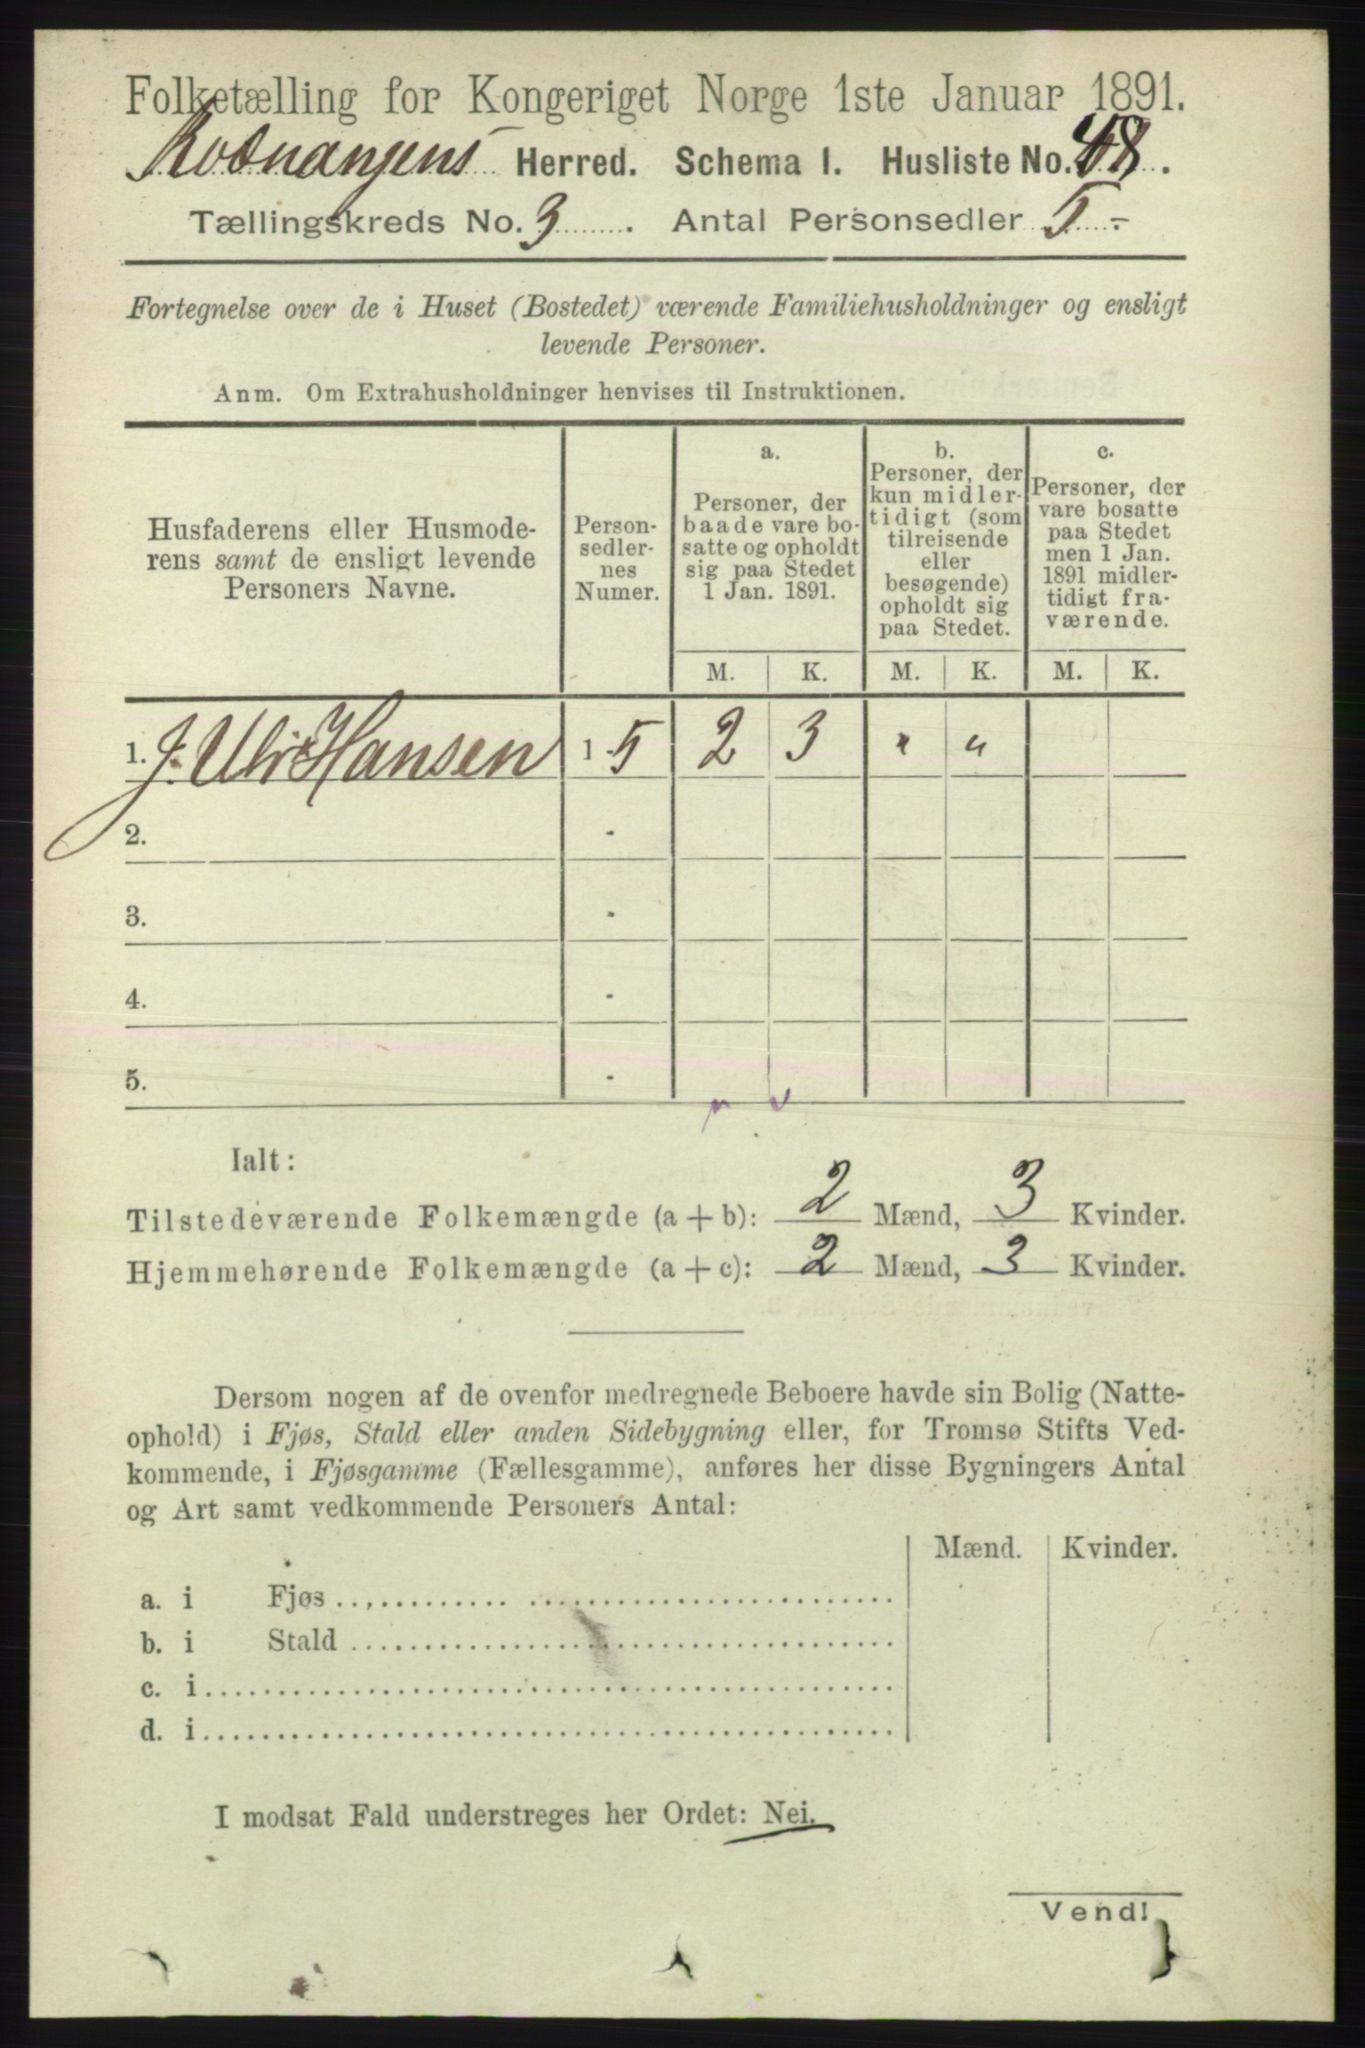 Folketælling for Kongeriget Norge 1ste Januar 1891.
Kvænangens Herred. Schema I. Husliste No. 48.
Tællingskreds No. 3. Antal Personsedler 5.-
Fortegnelse over de i Huset (Bostedet) værende Familiehusholdninger og ensligt
levende Personer.
Anm. Om Extrahusholdninger henvises til Instruktionen.
Husfaderens eller Husmode-
rens samt de ensligt levende
Personers Navne.
Person-
sedler-
nes
Numer.
a.
Personer, der
baade vare bo-
satte og opholdt
sig paa Stedet
1 Jan. 1891.
b.
Personer, der
kun midler-
tidigt (som
tilreisende
eller
besøgende)
opholdt sig
paa Stedet.
c.
Personer, der
vare bosatte
paa Stedet
men 1 Jan.
1891 midler-
tidigt fra-
værende.
M. K. M. K. M. K.
1. J. Hansen 1 - 5 2 3 " "
2. -
3. -
4. -
5. -
Ialt:
Tilstedeværende Folkemængde (a + b): 2 Mænd, 3 Kvinder.
Hjemmehørende Folkemængde (a + c): 2 Mænd, 3 Kvinder.
Dersom nogen af de ovenfor medregnede Beboere havde sin Bolig (Natte-
ophold) i Fjøs, Stald eller anden Sidebygning eller, for Tromsø Stifts Ved-
kommende, i Fjøsgamme (Fællesgamme), anføres her disse Bygningers Antal
og Art samt vedkommende Personers Antal:
Mænd. Kvinder.
a. i Fjøs
b. i Stald
c. i
d. i
I modsat Fald understreges her Ordet: Nei.
Vend!